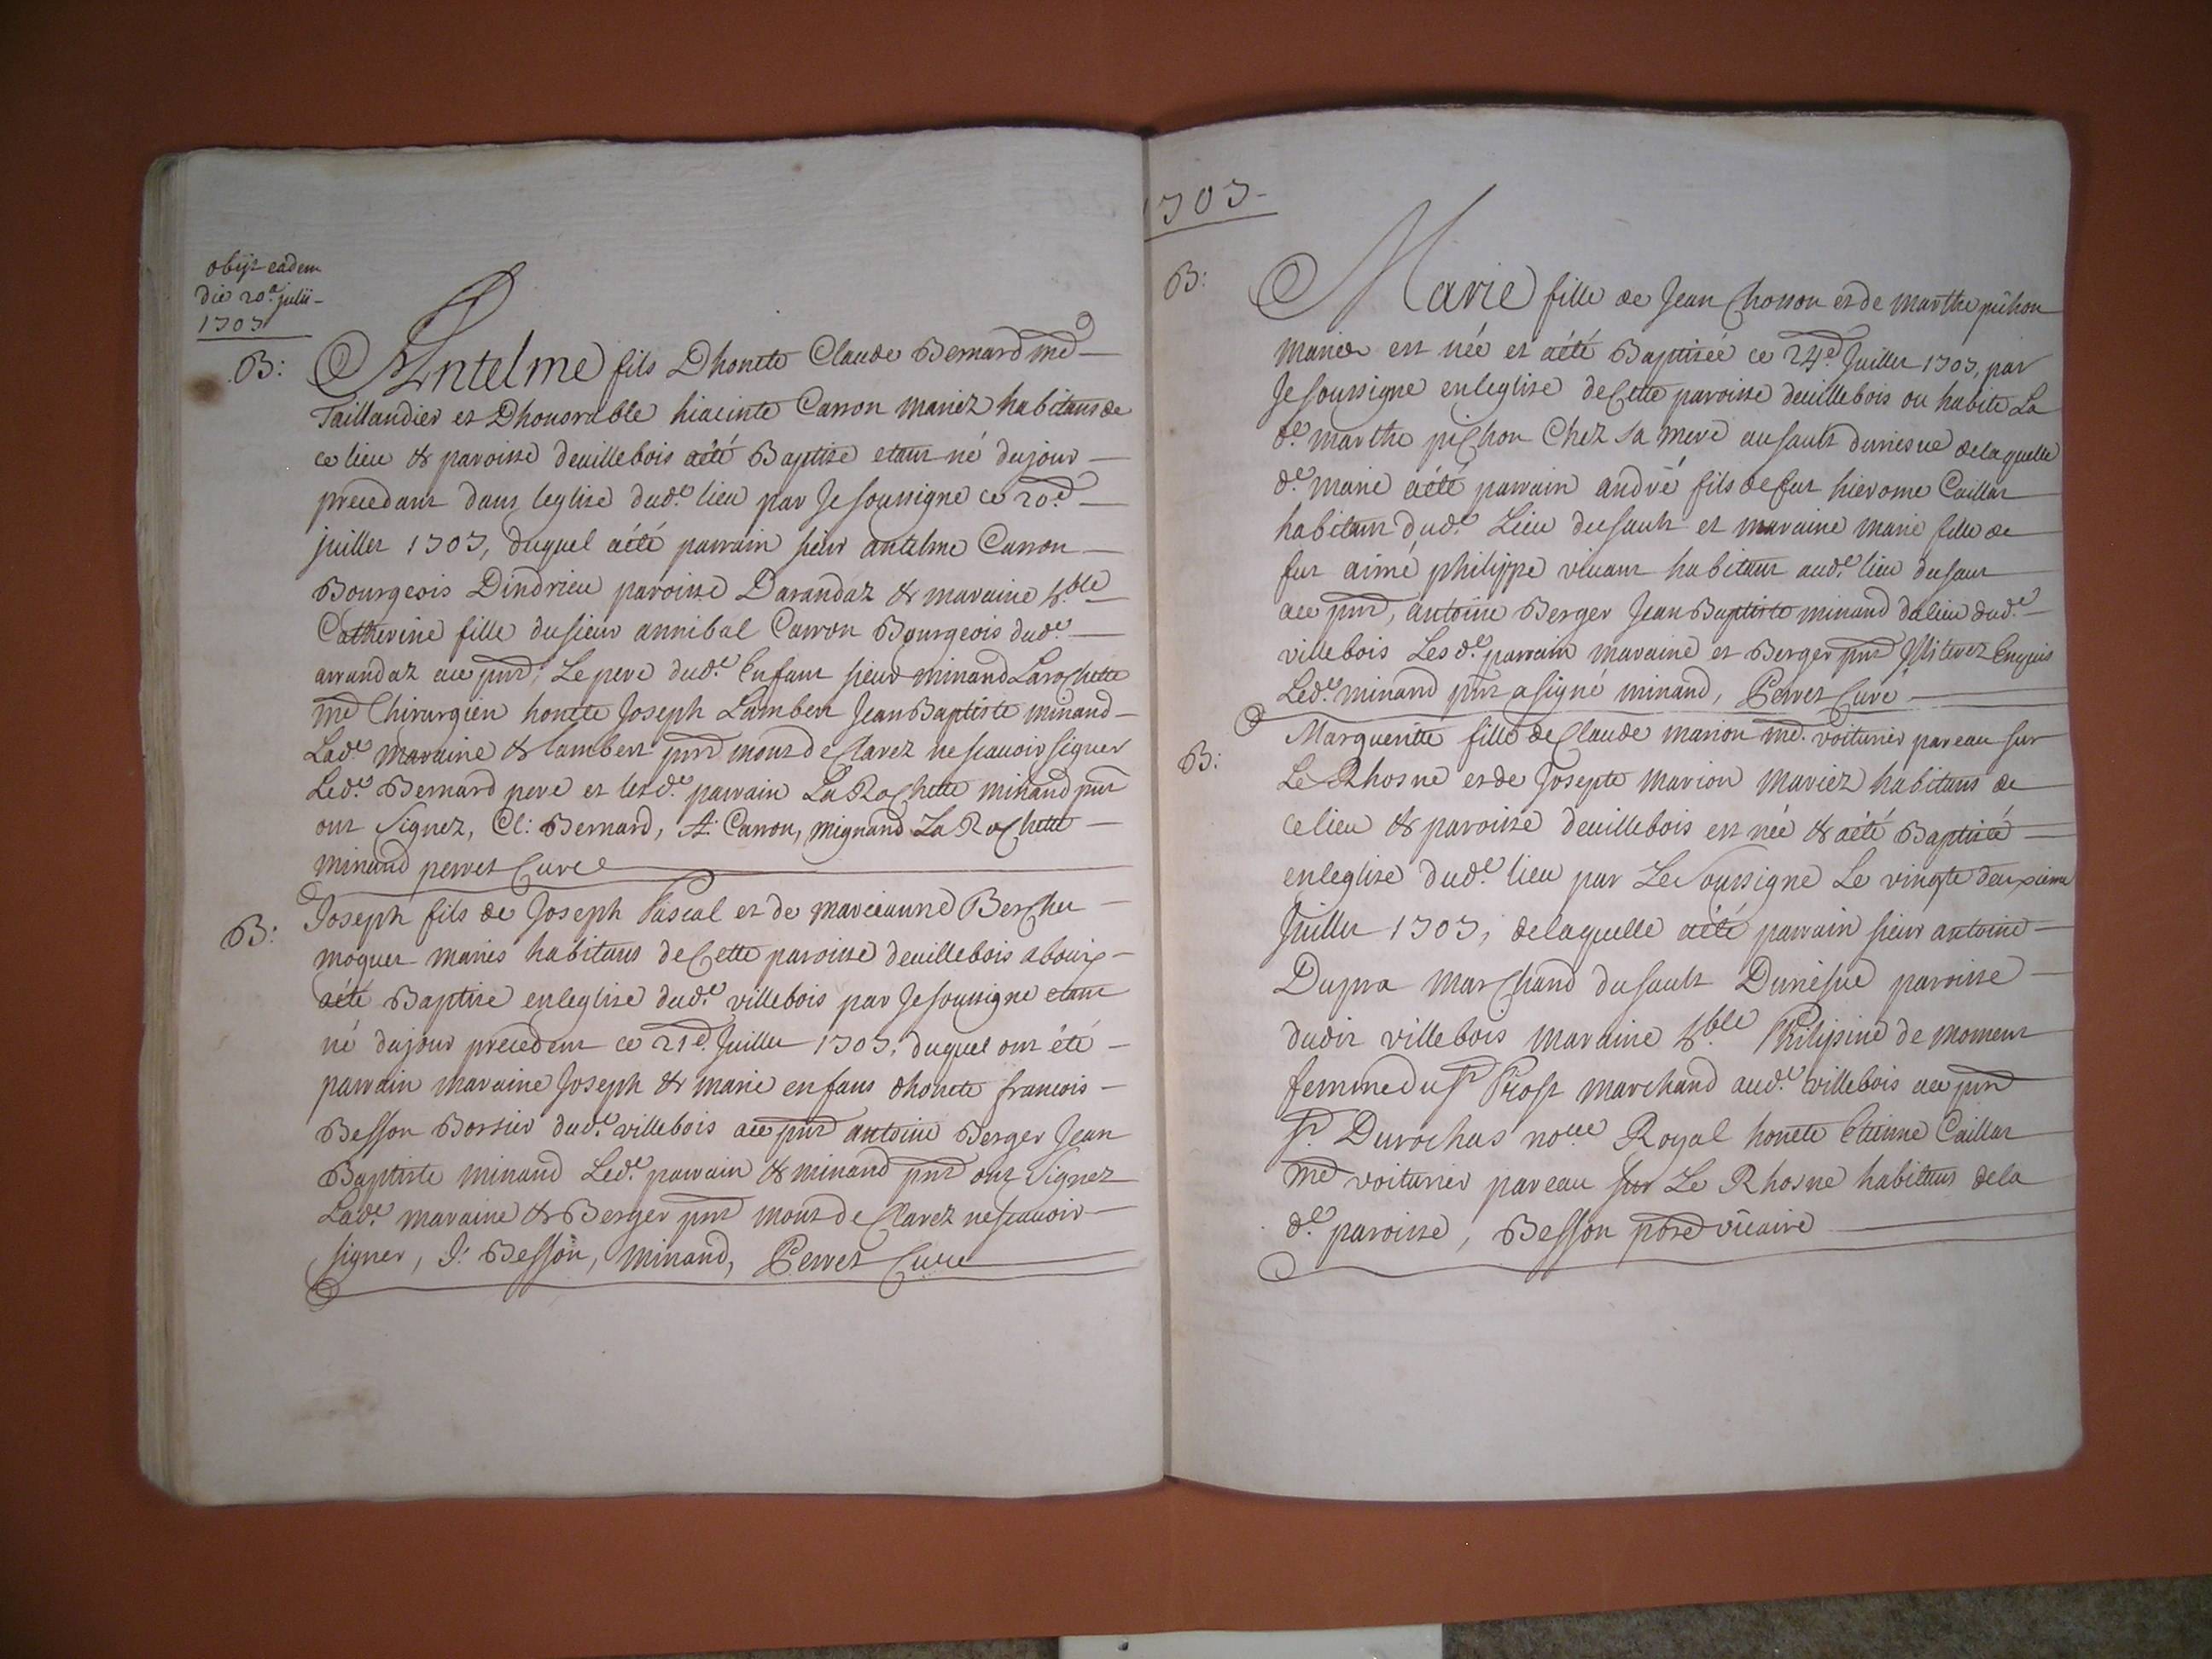 obijt eadem
die 20.a julii-
1707
B:
Antelme fils Dhonete Claude Bernard md
Taillandier et Dhonorable hiacinte Carron mariez habitans de
ce lieu & paroisse deuillebois aété Baptise etant né dujour
precedant dans leglise dud.e lieu par Je soussigne ce 20.e
juillet 1707, duquel aété parrain sieur antelme Carron
Bourgeois Dindrieu paroisse Darandaz & maraine h.ble
Catherine fille dusieur annibal Carron Bourgeois dud.e
arrandaz au pnt, Le pere dud.e Enfant sieur minand Larochette
me Chirurgien honete Joseph Lambert Jean Baptiste minand
Lad.e maraine & lambert pnt mont declarez ne scauoir signer
Led.e Bernard pere et lesd.e parrain La Rochette minand pnt
ont signez, Cl: Bernard, A: Carron, mignand La Rochette
minand perret Curé
B:
Joseph fils de Joseph Pascal et de marieanne Berchu
moquet maries habitans decette paroisse deuillebois abouis
aété Baptise enleglise dud.e villebois par Je soussigne etant
né dujour precedent ce 21.e Juillet 1707. duquel ont été
parrain maraine Joseph & marie enfans dhonete francois
Besson Borsier dud.e villebois au pnt antoine Berger Jean
Baptiste minand Led.e parrain & minand pnt ont signez
Lad.e maraine & Berger pnt mont declarez ne scauoir
signer, J: Besson, minand, Perret Curé
1707-
B:
Marie fille de Jean Chosson et de marthe pichon
maries est née et aété Baptisée ce 24.e Juillet 1707, par
Je soussigne enleglise decette paroisse deuillebois ou habite La
d.e marthe pichon Chez sa mere ausault duriesne delaquelle
d.e marie aété parrain andré fils defut hierome Caillat
habitant dud.e Lieu du sault et maraine marie fille de
fut aimé philippe viuant habitant aud.e lieu dusaut
au pnt, antoine Berger Jean Baptiste minand dulieu dud.e
villebois Lesd.e parrain maraine et Berger pnt Jlliterez Enquis
Led.e minand pnt asigné minand, Perret Curé
B:
Marguerite fille de Claude marion md. voiturier pareau sur
Le Rhosne et de Josepte marion mariez habitans de
celieu & paroisse deuillebois est née & aété Baptisé
enleglise dud.e lieu par Le soussigne Le vingte deuxieme
Juillet 1707, delaquelle aété parrain sieur antoine
Dupra marchand dusault Duriesne paroisse
dudit villebois maraine h.ble Philipine de moment
femme du sr Prost marchand aud.e villebois au pnt
sr. Durochas noere Royal honete Etienne Caillat
md voiturier pareau sur Le Rhosne habitans dela
d.e paroisse, Besson pbre vicaire